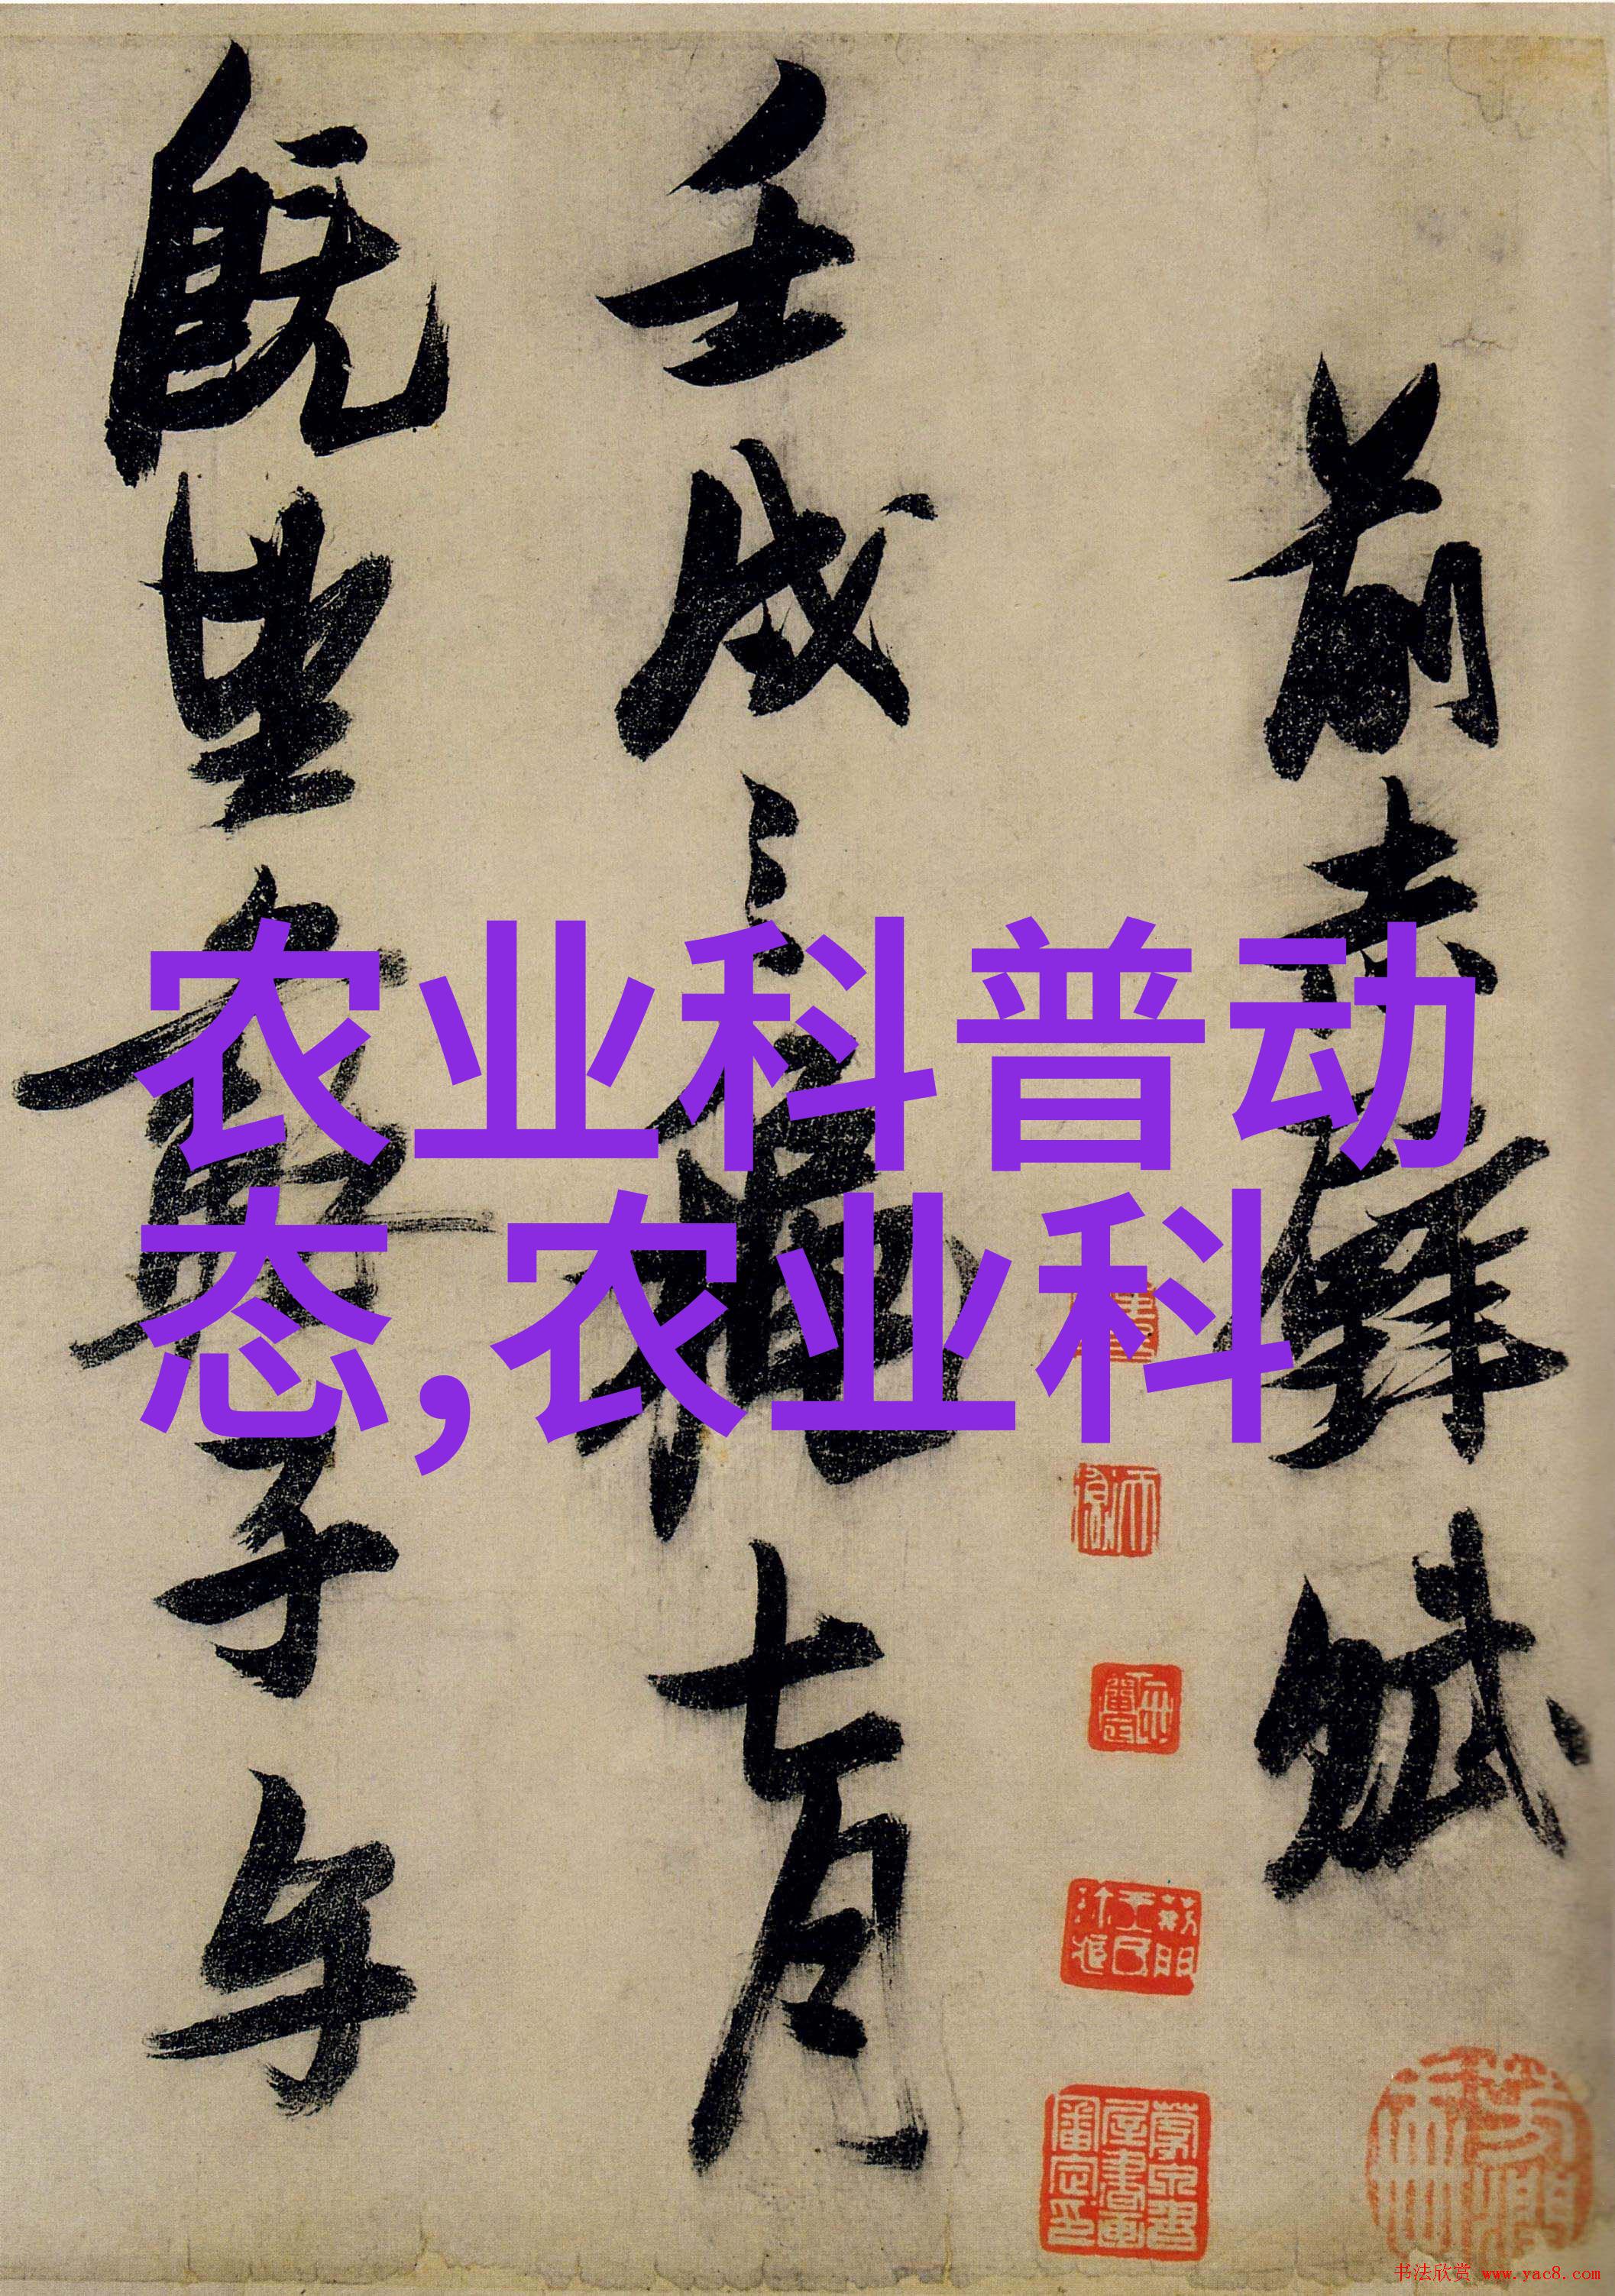 前赤壁賦
壬戌之秋七月
既望蘇子与
农业科普动
态,农业科
书法欣赏 www.yac8.com